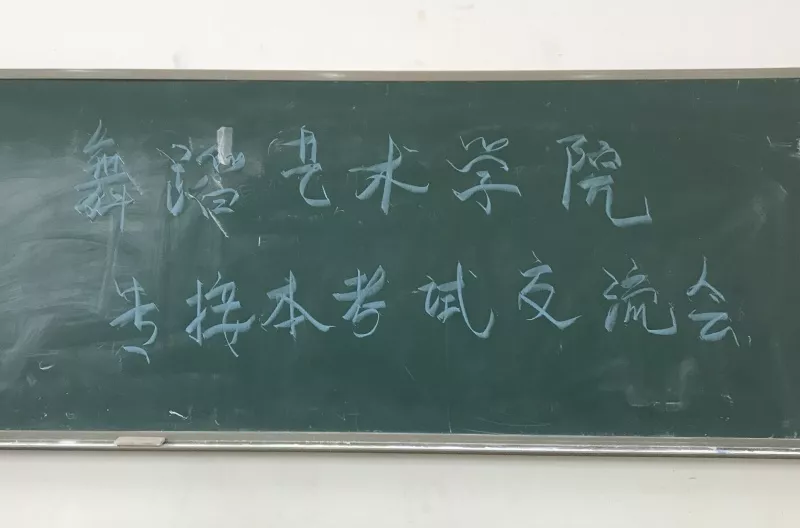 舞蹈艺术学院
专接本考试交流会